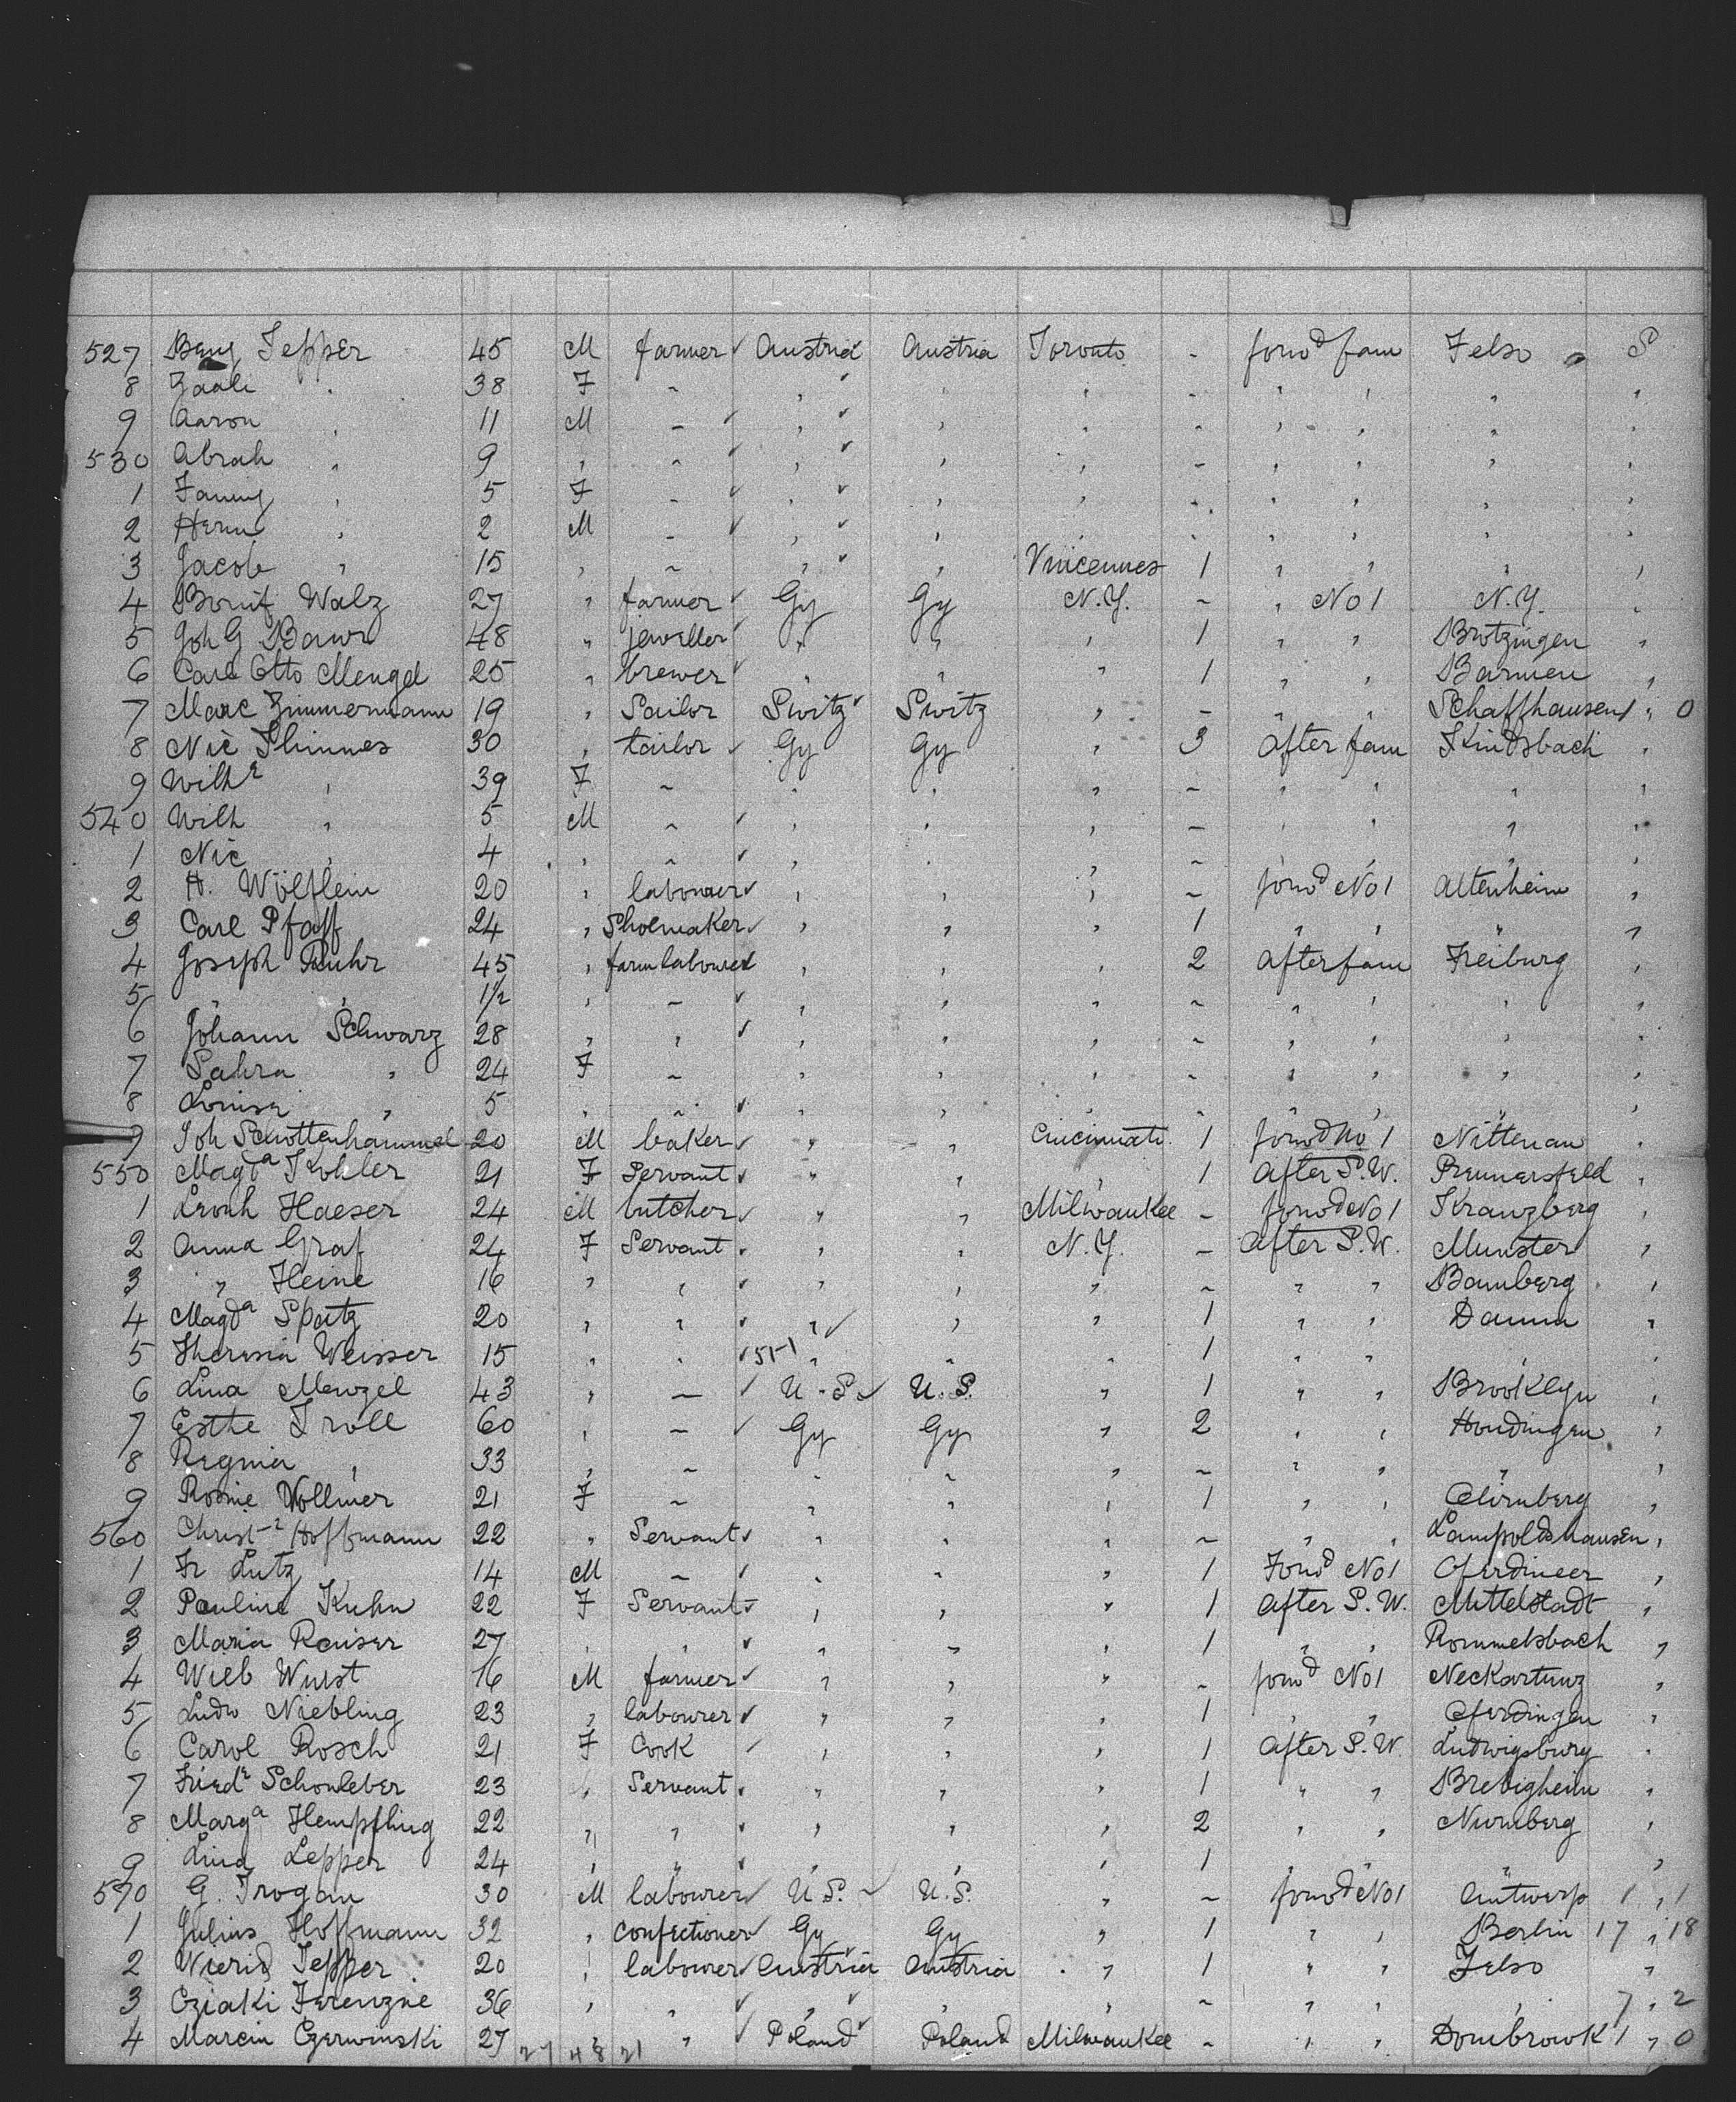 527 Benj Tepper 45 M farmer Austria Austria Toronto - forwd fam Jelso S
8 Zaale " 38 F - " " " - " " " "
9 Aaron " 11 M - " " " - " " " "
530 Abrah " 9 " - " " " - " " " "
1 Fanny " 5 F - " " " - " " " "
2 Herm " 2 M - " " " - " " " "
3 Jacob " 15 " - " " Vincennes 1 " " " "
4 Bonif Walz 27 " farmer Gy Gy N.Y. - " No 1 N.Y. "
5 Joh G Baur 48 " jeweller " " " 1 " " Brotzingen "
6 Carl Otto Mengel 25 " brewer " " " 1 " " Barmen "
7 Marc Zimmermann 19 " Sailor Switz Switz " - " " Schaffhausen 1 " 0
8 Nic Thinnes 30 " tailor Gy Gy " 3 after fam Kindsbach "
9 Wilhe " 39 F - " " " - " " " "
540 Wilh " 5 M - " " " - " " " "
1 Nic " 4 " - " " " - " " " "
2 H. Wölflein 20 " labourer " " " - forwd No 1 Altenheim "
3 Carl Pfaff 24 " Shoemaker " " " 1 " " " "
4 Joseph Ruhr 45 " farmlabourer " " " 2 after fam Freiburg "
5 " " 1½ " - " " " - " " " "
6 Johann Schwarz 28 " " " " " - " " " "
7 Sahra " 24 F - " " " - " " " "
8 Louise " 5 " - " " " - " " " "
9 Joh Schottenhammel 20 M baker " " Cincinnati 1 forwd No 1 Nittenau "
550 Magda Kohler 21 F Servant " " " 1 after S.W. "
1 Leonh Haeser 24 M butcher " " Milwaukee - forwd No 1 Kranzberg "
2 Anna Graf 24 F Servant " " N.Y. - after S.W. Munster "
3 " Heine 16 " " " " " - " " Bamberg "
4 Magda Spatz 20 " " " " " 1 " " Damm "
5 Theresia Weisser 15 " " 51-1 " " " 1 " " " "
6 Lina Menzel 43 " - U.S. U.S. " 1 " " Brooklyn "
7 Esthe Troll 60 " - Gy Gy " 2 " " "
8 Regina " 33 " - " " " - " " " "
9 Rosine Vollmer 21 F - " " " 1 " " "
560 Christ-e Hoffmann 22 " Servant " " " - " " Lampoldshausen "
1 Fr Lutz 14 M - " " " 1 Forwd No 1 "
2 Pauline Kuhn 22 F Servant " " " 1 after S.W. Mittelstadt "
3 Maria Raiser 27 " " " " " 1 " " Rommelsbach "
4 Wilb Wurst 16 M farmer " " " - forwd No 1 Neckartung "
5 Ludw Niebling 23 " labourer " " " 1 " " "
6 Carol Rosch 21 F Cook " " " 1 after S.W. Ludwigsburg "
7 Friede Schonleber 23 " Servant " " " 1 " " Bretigheim "
8 Marga Hempfling 22 " " " " " 2 " " Nurnberg "
9 Lina Lepper 24 " " " " " 1 " " " "
570 G. Trogan 30 M labourer U.S. U.S. " - forwd No 1 Antwerp 1 " 1
1 Julius Hoffmann 32 " confectioner Gy Gy " 1 " " Berlin 17 " 18
2 Tepper 20 " labourer Austria Austria " 1 " " Jelso "
3 Cziaki Ferenzne 36 " " " " " - " " " 7 " 2
4 Marcin Czerwinski 27 " Poland Poland Milwaukee - " " Dombrowk 1 " 0
27 48 21